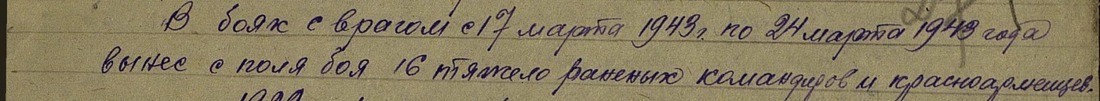 В боях с врагом с 17 марта 1943 г. по 24 марта 1943 года
вынес с поля боя 16 тяжело раненых командиров и красноармейцев.